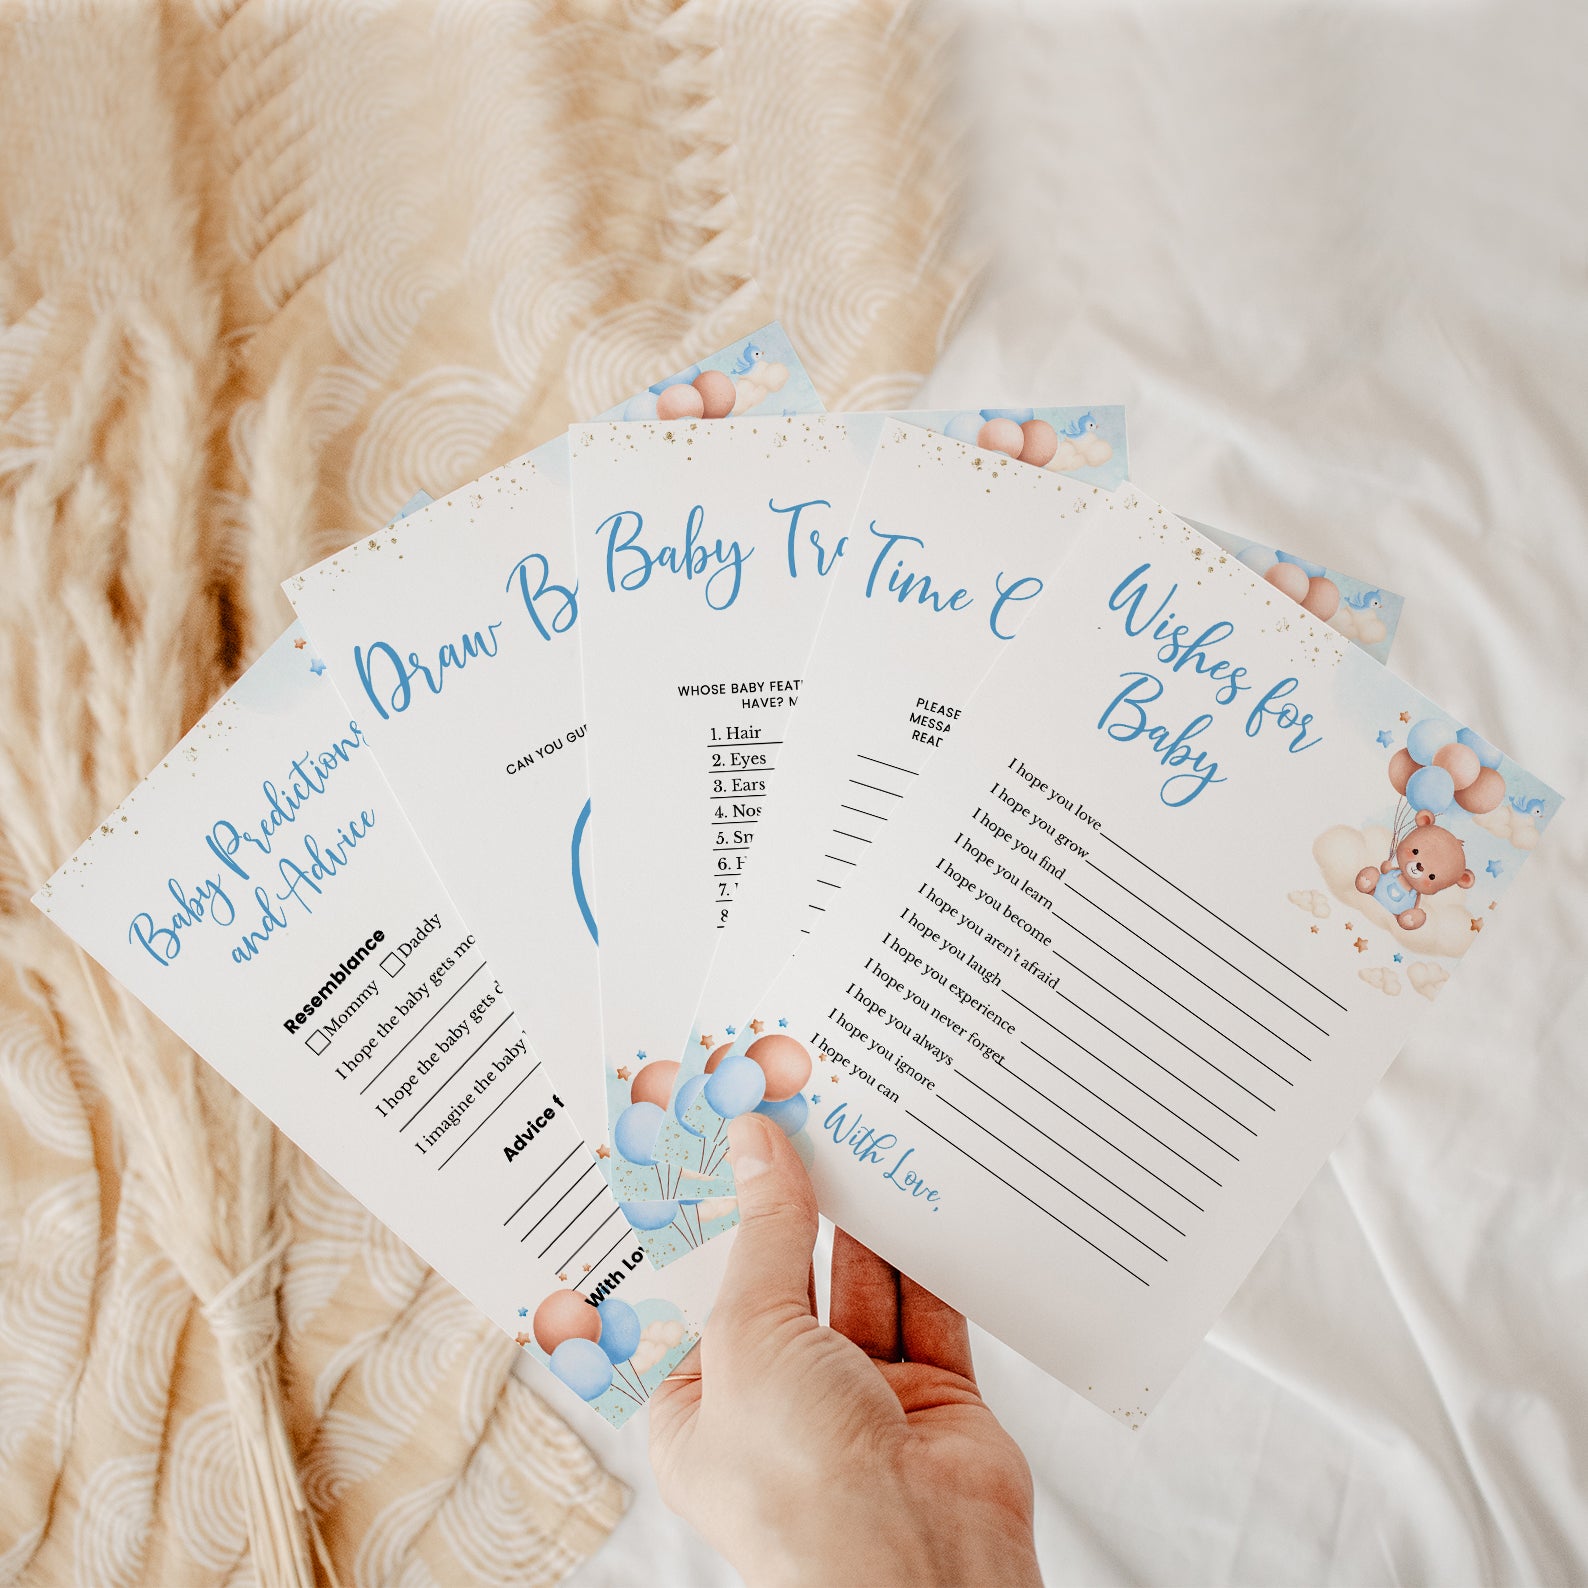 Baby Predictions
and Advice
Resemblance
Mommy Daddy
I hope the baby gets
I hope the baby gets
I imagine the baby
Advice
With
Draw B
CAN YOU
Baby
WHOSE BABY
HAVE?
1. Hair
2. Eyes
3. Ears
4.
5.
6.
7.
8
Time C
PLEASE
Wishes for
Baby
I hope you love
I hope you grow
I hope you find
I hope you learn
I hope you become
I hope you aren't afraid
I hope you laugh
I hope you experience
I hope you never forget
I hope you always
I hope you ignore
I hope you can
With Love,